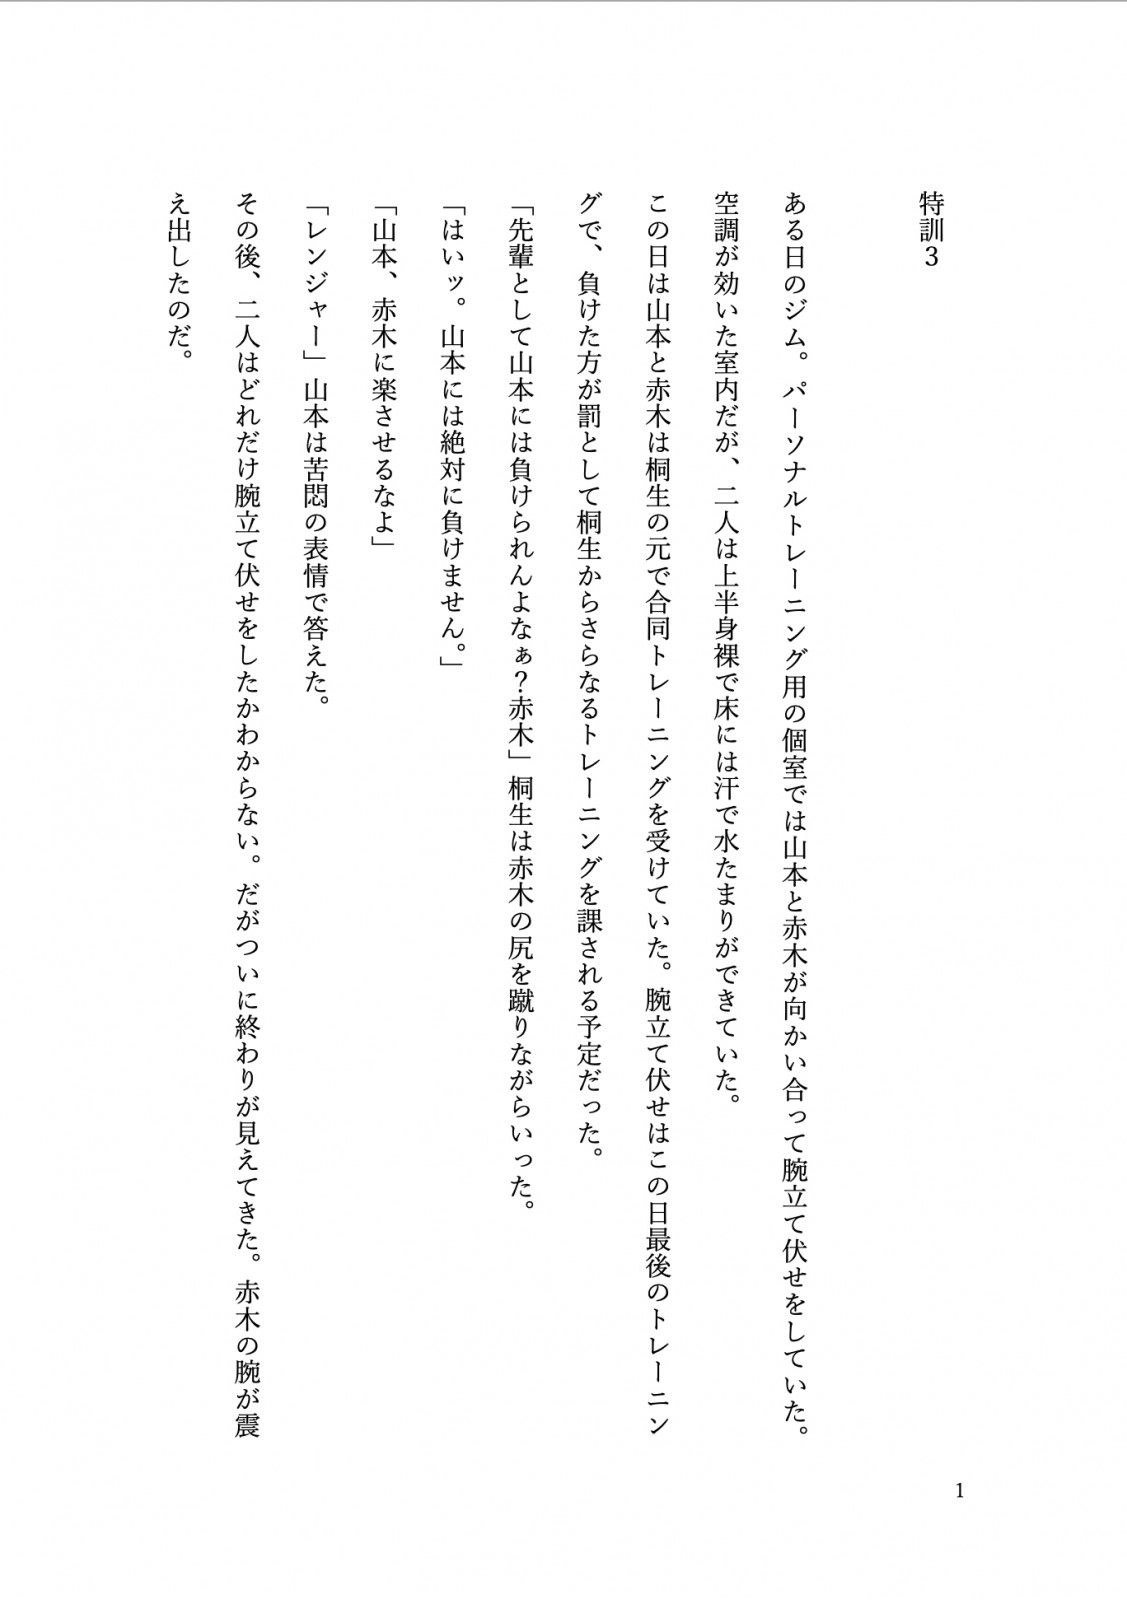 特訓３
ある日のジム。パーソナルトレーニング用の個室では山本と赤木が向かい合って腕立て伏せをしていた。
空調が効いた室内だが、二人は上半身裸で床には汗で水たまりができていた。
この日は山本と赤木は桐生の元で合同トレーニングを受けていた。腕立て伏せはこの日最後のトレーニン
グで、負けた方が罰として桐生からさらなるトレーニングを課される予定だった。
「先輩として山本には負けられんよなぁ？赤木」桐生は赤木の尻を蹴りながらいった。
「はいッ。山本には絶対に負けません。」
「山本、赤木に楽させるなよ」
「レンジャー」山本は苦悶の表情で答えた。
その後、二人はどれだけ腕立て伏せをしたかわからない。だがついに終わりが見えてきた。赤木の腕が震
え出したのだ。
1